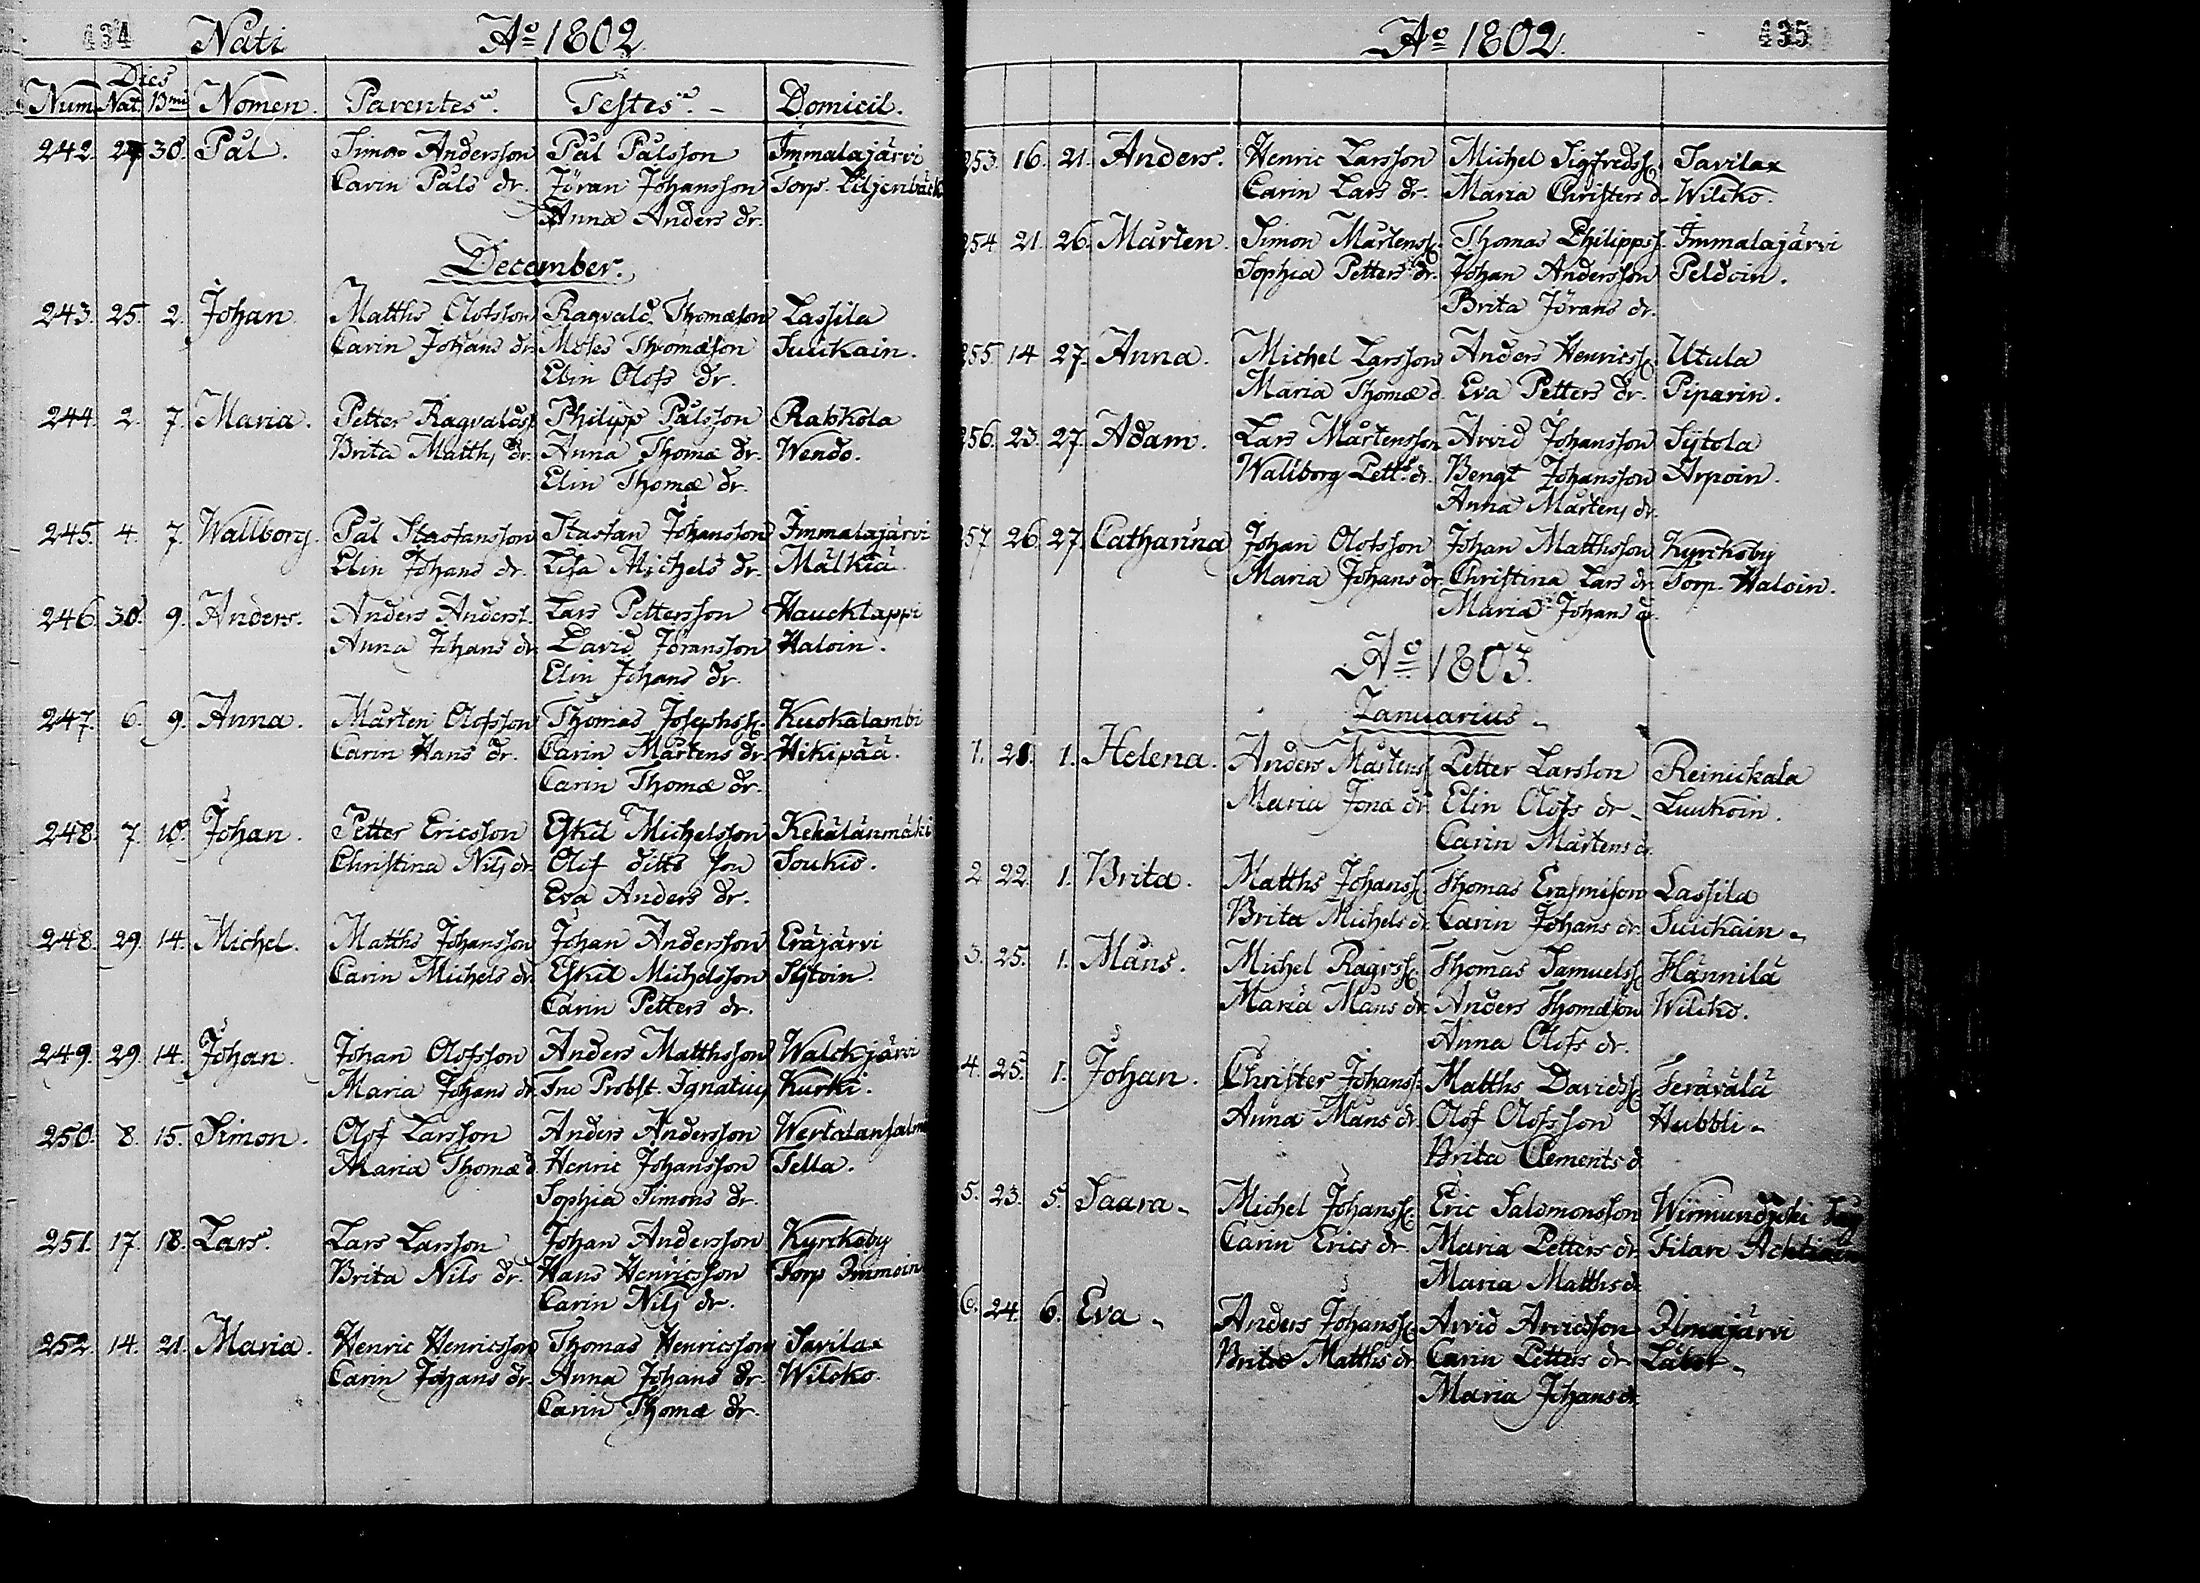 434 Nati Aº 1802
Dies
Num. Nat. Bmi Nomen. Parentes. Testes. Domicil.
242. 27 30. Pål. Simon Andersson Pål Pålsson Immalajärvi
Carin Påls dr. Jöran Johansson Torp Liljenbäck
Anna Anders dr.
December.
243. 25. 2. Johan Matths Olofsson Ragvald Thomæson Lassila
Carin Johans dr. Moses Thomæson Suikain.
Elin Olofs dr.
244. 2. 7. Maria. Petter Ragvalds Philipp Pålsson Rahkola
Brita Matths dr. Anna Thomæ dr. Wendo.
Elin Thomæ dr.
245. 4. 7. Wallborg. Pål Stastansson Stastan Johansson Immalajärvi
Elin Johans dr. Lisa Michels dr. Mälkiä.
246. 30. 9. Anders. Anders Anderss. Lars Pettersson Haucklappi
Anna Johans dr. David Jöransson Haloin.
Elin Johans dr.
247. 6. 9. Anna. Mårten Olofsson Thomas Josephss. Kuokalambi
Carin Hans dr. Carin Mårtens dr. Hikipää.
Carin Thomæ dr.
248. 7. 10. Johan. Petter Ericsson Eskil Michelsson Kekälänmäki
Christina Nils dr. Olof ditto son Soukio.
Eva Anders dr.
248. 29. 14. Michel. Matths Johansson Johan Andersson Eräjärvi
Carin Michels dr. Eskil Michelsson Sijtoin.
Carin Petters dr.
249. 29. 14. Johan. Johan Olofsson Anders Matthsson Walckjärvi
Maria Johans dr. Fru Probst. Ignatius Kurki.
250. 8. 15. Simon. Olof Larsson Anders Andersson Wertalansalmi
Maria Thomæ d. Henric Johansson Tella.
Sophia Simons dr.
251. 17. 18. Lars. Lars Larsson Johan Andersson Kyrckoby
Brita Nils dr. Hans Henricsson Torp Immoin
Carin Nils dr.
252. 14. 21. Maria. Henric Henricsson Thomas Henricsson Savilax
Carin Johans dr. Anna Johans dr. Wilcko.
Carin Thomæ dr.
Aº 1802. 435
253. 16. 21. Anders. Henric Larsson Michel Sigfredss. Savilax
Carin Lars dr. Maria Christers d. Wilcko.
254 21. 26. Mårten. Simon Mårtenss. Thomas Philipps. Immalajärvi
Sophia Petters dr. Johan Andersson Peldoin.
Brita Jörans dr.
255 14 27. Anna. Michel Larsson Anders Henricss. Utula
Maria Thomæ d. Eva Petters dr. Piparin.
256. 23. 27. Adam. Lars Mårtensson Arvid Johansson Sijtola
Wallborg Pett. dr. Bengt Johansson Arpoin.
Anna Mårtens dr.
257 26. 27. Catharina Johan Olofsson Johan Matthsson Kyrckoby
Maria Johans dr. Christina Lars dr. Torp. Haloin.
Maria Johan d.
Aº 1803.
Januarius
1. 21. 1. Helena. Anders Mårtens Petter Larsson Reinickala
Maria Jonæ dr. Elin Olofs dr. Luukoin.
Carin Mårtens dr.
2 22. 1. Brita. Matths Johanss. Thomas Erasmison Lassila
Brita Michels dr. Carin Johans dr. Suickain
3. 25. 1. Måns. Michel Ragvss. Thomas Samuelss. Hännilä
Maria Måns dr. Anders Thomæson Wilcko.
Anna Olofs dr.
4. 25. 1. Johan. Christer Johanss. Matths Davidss. Terävälä
Anna Måns dr. Olof Olofsson Hubbli
Brita Clements d.
5. 23. 5. Saara Michel Johanss. Eric Salomonsson
Carin Erics dr Maria Petters dr.
Maria Matths d.
6. 24. 6. Eva Anders Johanss. Arvid Arvidsson Ilmajärvi
Brita Matths dr. Carin Petters dr
Maria Johans dr.